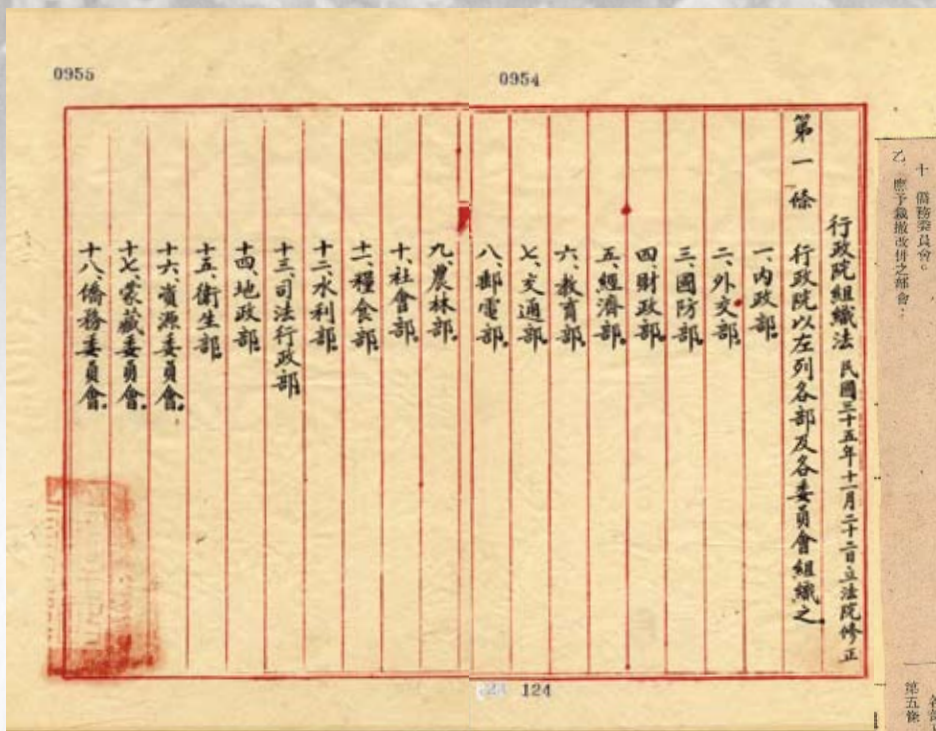 0955
0954
行政院組織法 民國三十五年十一月二十二日立法院修正
第一條 行政院以左列各部及各委員會組織之
一、內政部
二、外交部
三、國防部
四、財政部
五、經濟部
六、教育部
七、交通部
八、郵電部
九、農林部
十、社會部
十一、糧食部
十二、水利部
十三、司法行政部
十四、地政部
十五、衛生部
十六、資源委員會
十七、蒙藏委員會
十八、僑務委員會
124
十 僑務委員會。
乙 應予裁撤改併之部會：
第五條